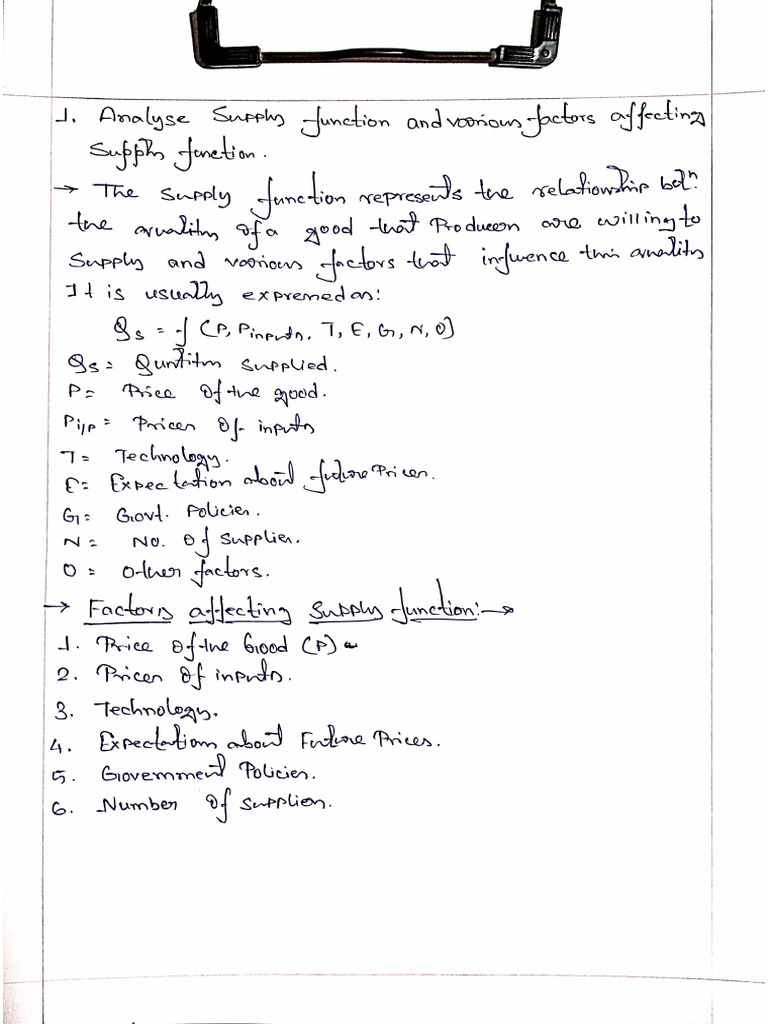 1. Analyse Supply function and various factors affecting
Supply function.
→ The Supply function represents the relationship betn.
the quality of a good that Producers are willing to
Supply and various factors that influence this quality
It is usually expressed as:
Qs = f (P, Pinputs, T, E, G, N, O)
Qs = Quntity supplied.
P = Price of the good.
Pi/p = Prices of inputs
T = Technology.
E = Expectation about future Prices.
G = Govt. Policies.
N = No. of supplies.
O = Other factors.
→ Factors affecting supply function:→
1. Price of the Good (P)
2. Prices of inputs.
3. Technology.
4. Expectations about Future Prices.
5. Government Policies.
6. Number of supplies.